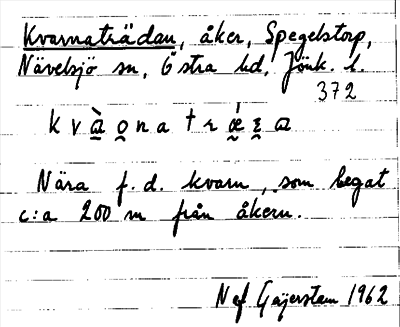 Kvarnaträdan, åker, Spegelstorp,
Nävelsjö sn, Östra hd, Jönk. l.
372
k v à̱ o̱ n a t r ǽ̰ ɛ̰ a
Nära f. d. kvarn, som legat
c:a 200 m från åkern.
Nef Gaijerstam 1962